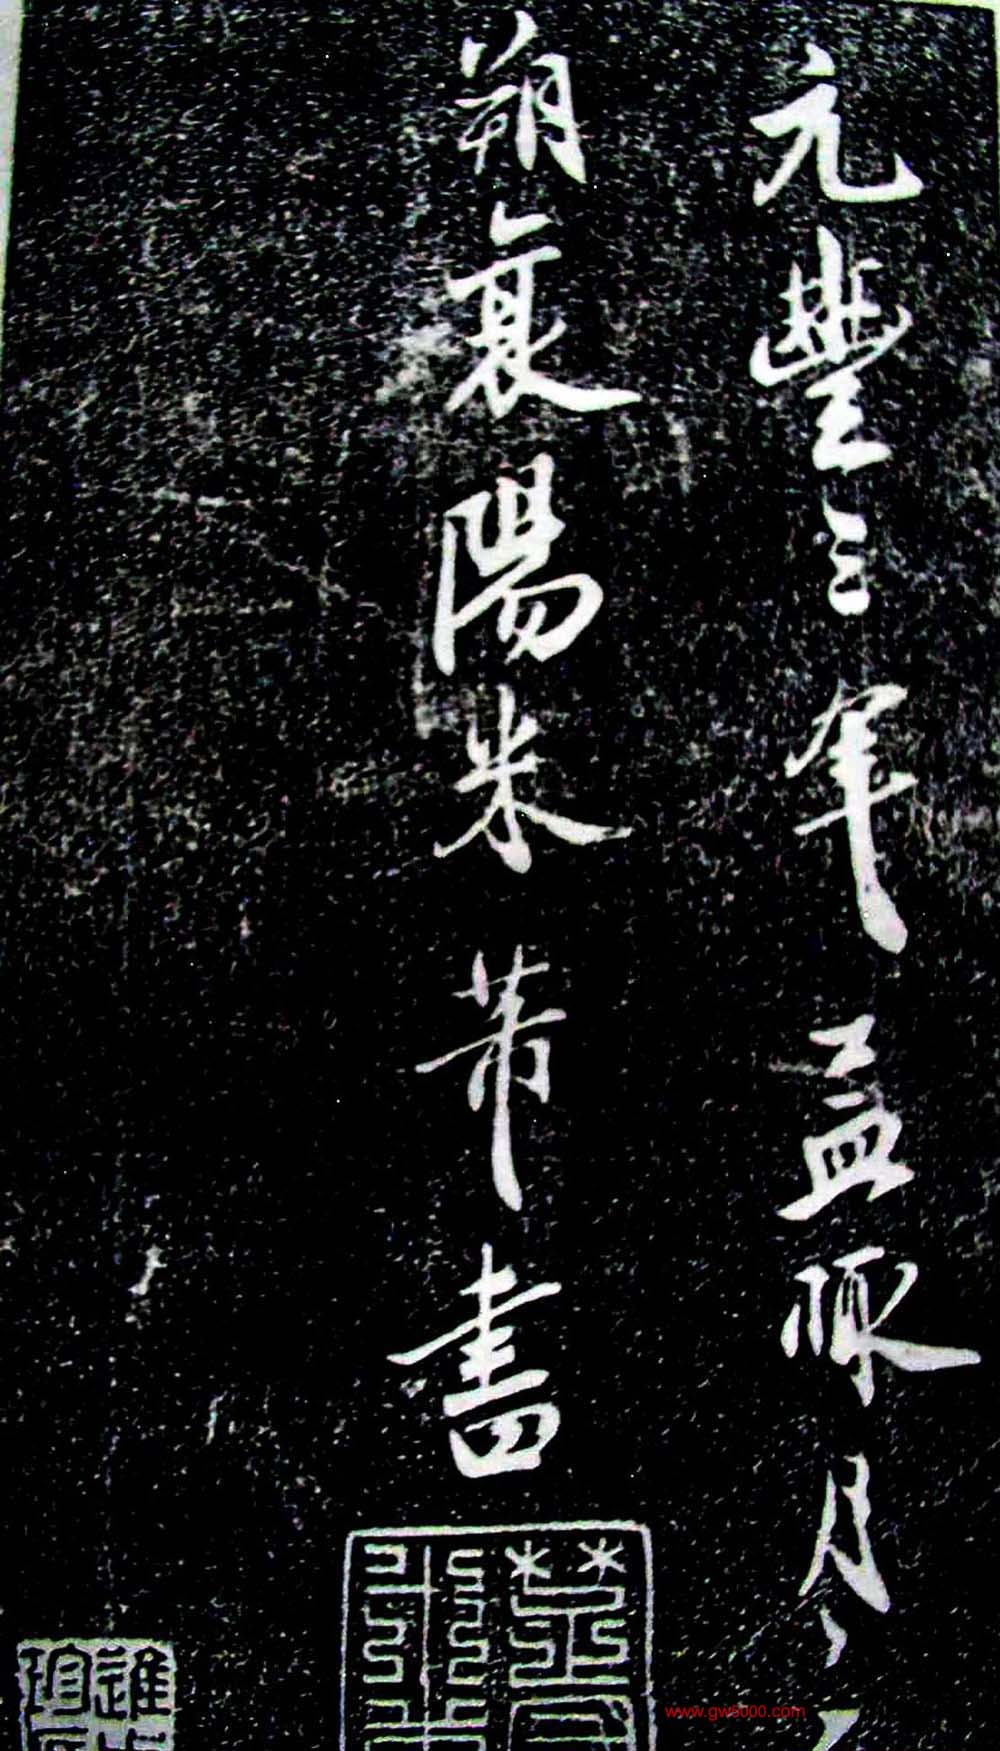 元豐三年孟啄月
朔襄陽米芾書
www.gw5000.com